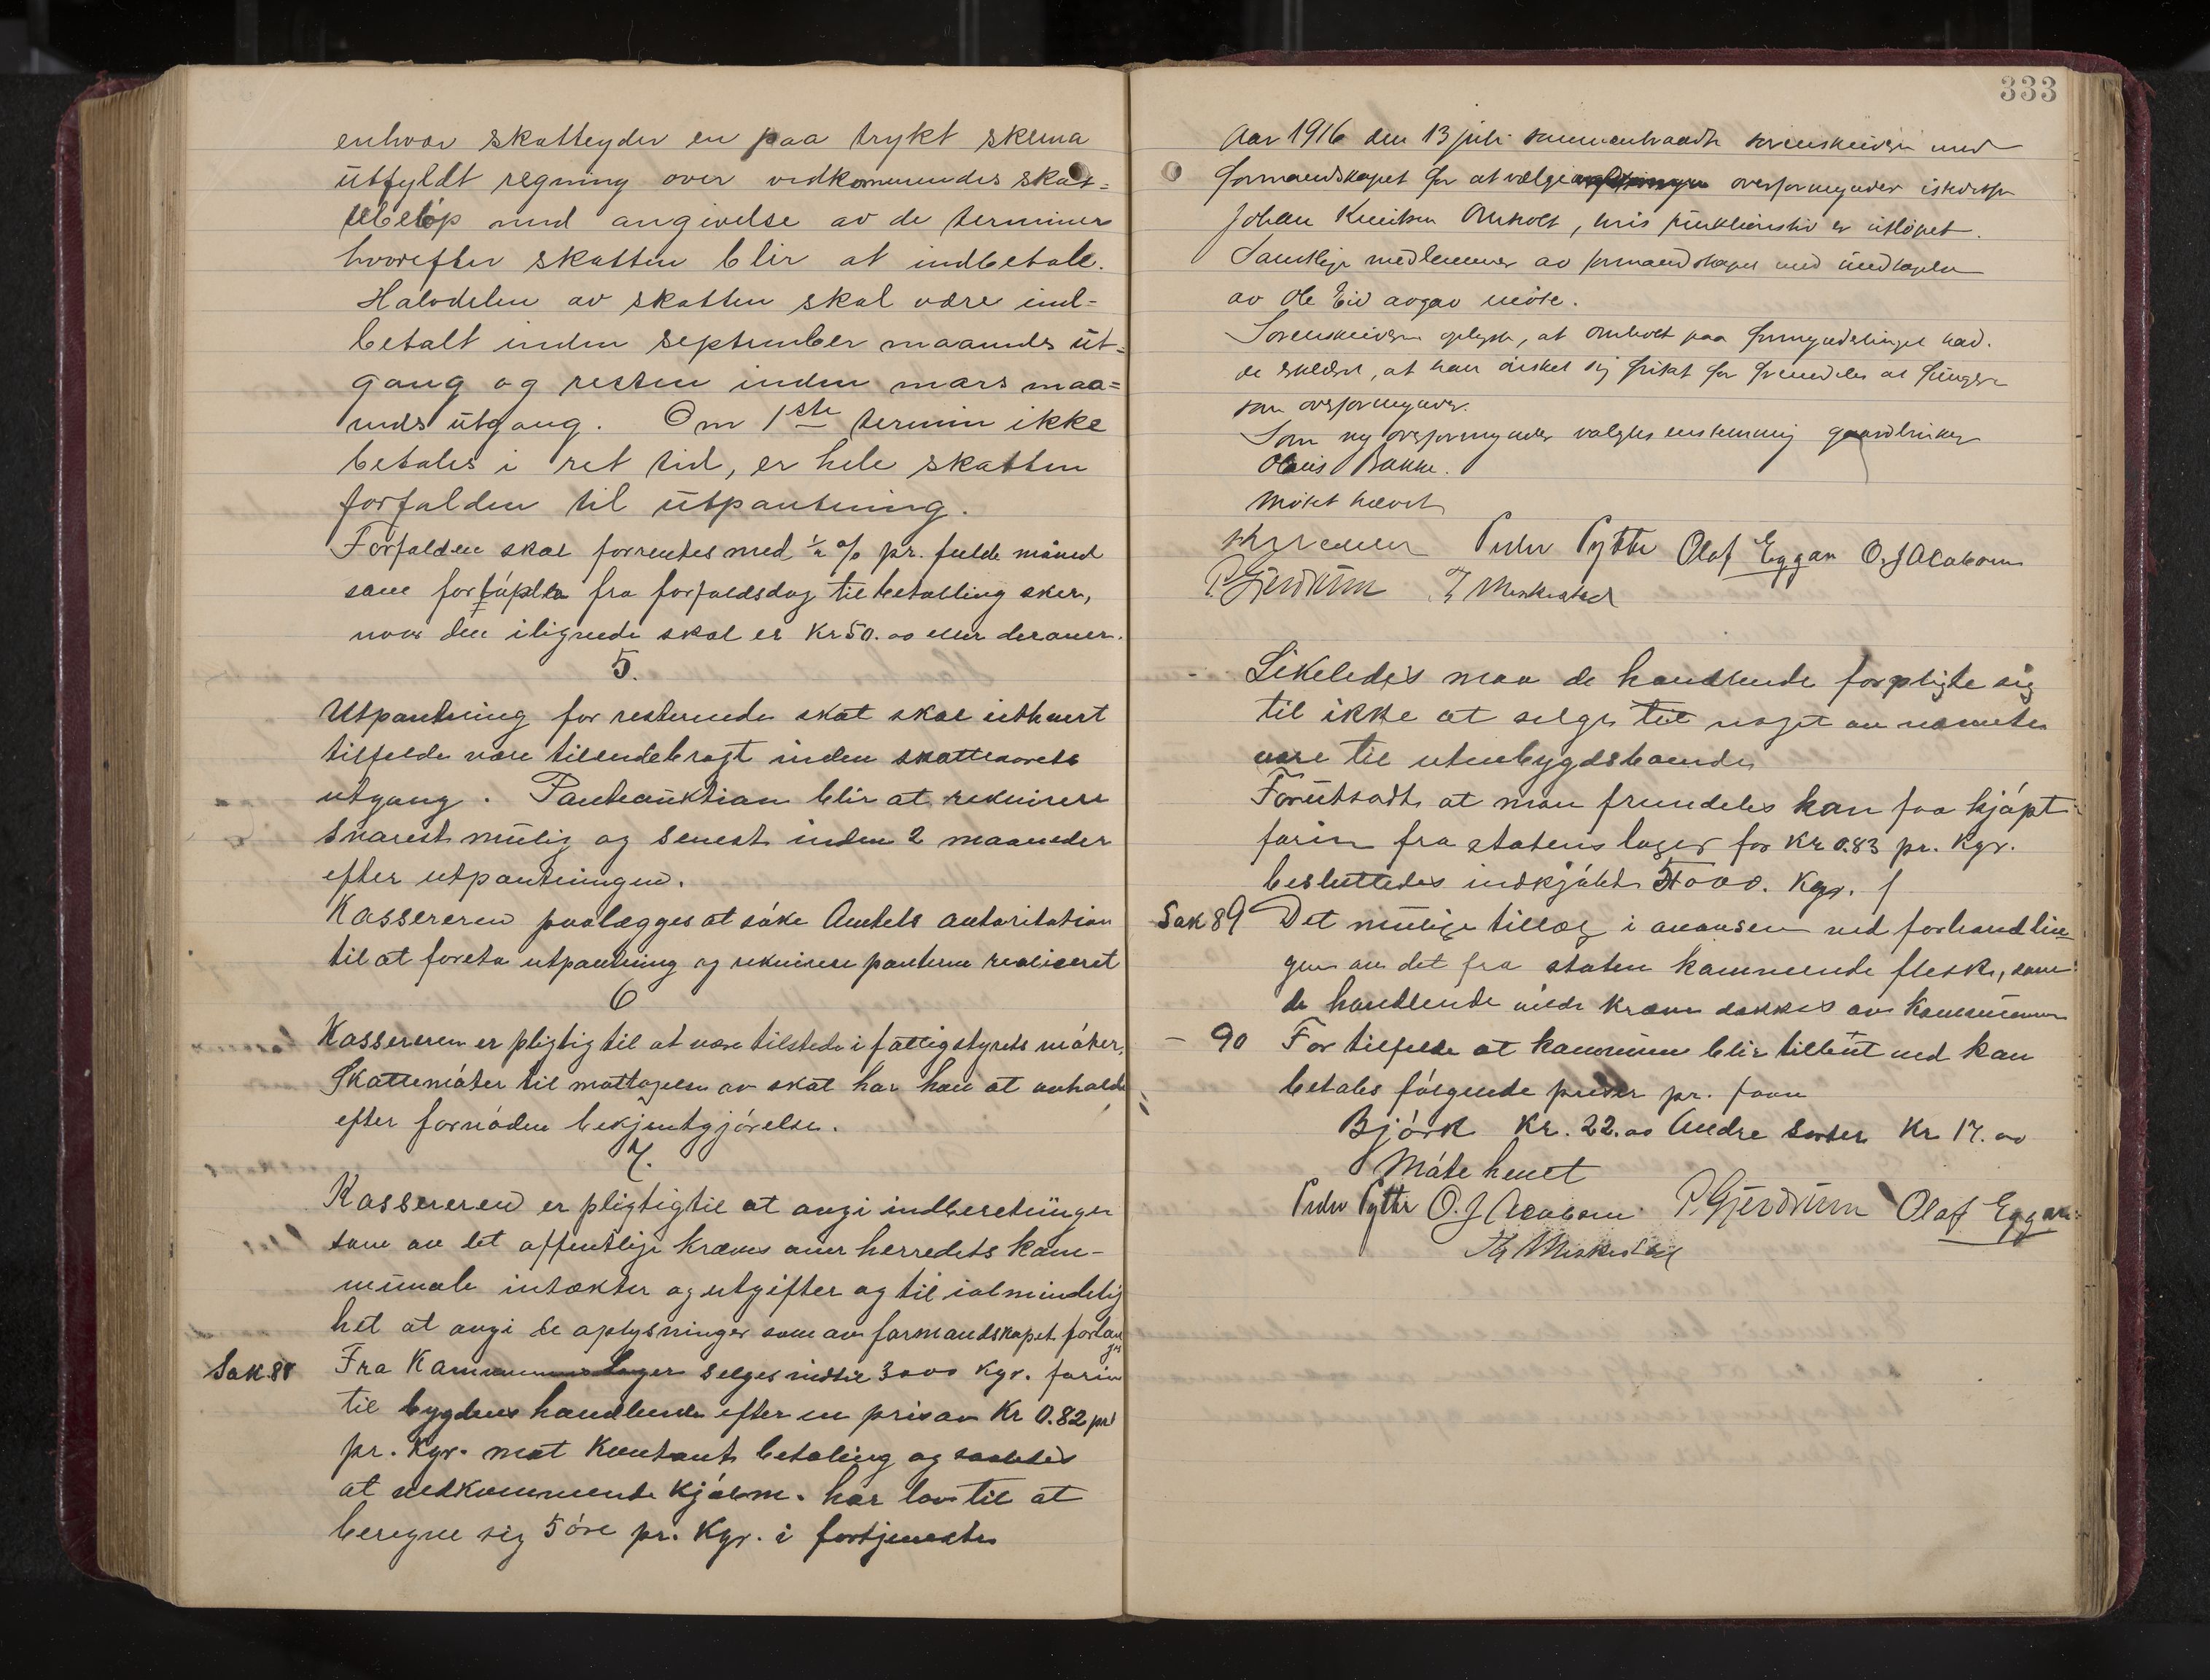 enhver skatteyder en paa trykt skema
utfyldt regning over vedkommendes skat-
tebeløp med angivelse av de terminer
hvorefter skatten blir at indbetale.
Halvdelen av skatten skal være ind-
betalt inden september maaneds ut-
gang og resten inden mars maa-
neds utgang. Om 1ste termin ikke
betales i ret tid, er hele skatten
forfalden til utpantning.
Forfalden skat forrentes med ½ % pr. fulde måned
som forløpten fra forfaldsdag til betalling sker,
naar den ilignede skat er Kr 50.00 eller derover.
5.
Utpantning for resterende skat skal ethvert
tilfelde være tilendebragt inden skatteaarets
utgang. Panteauktion blir at rekvirere
snarest mulig og senest inden 2 maaneder
efter utpantningen.
Kassereren paalægges at søke Amtets autoritation
til at foreta utpantning og rekvirere panterne realiceret
6
Kassereren er pligtig til at være tilstede i fattigstyrets møter.
Skattemøter til mottagelse av skat har han at avholde
efter fornøden bekjentgjørelse.
7.
Kassereren er pligtig til at avgi indberetninger
som av det offentlige kræves over herredets kom-
munale intækter og utgifter og til ialmindelig
het at avgi de oplysninger som av formandskapet forlan
ges
Sak 88 Fra Kommunens lager selges indtil 3000 Kgr. farin
til bygdens handlende efter en pris av Kr 0.82 pr
pr. Kgr. mot Kontant betaling og saaledes
at vedkommende Kjøbm. har lov til at
beregne sig 5 øre pr. Kgr. i fortjeneste
333
Aar 1916 den 13 juli sammentraadte sorenskriveren med
formandskapet for at vælge overformynder istedetfor
Johan Knutsen Omholt, hvis funktionstid er utløpet.
Samtlige medlemmer av formandskapet med undtagelse
av Ole Eid avgav møte.
Sorenskriveren oplyste, at Omholt paa formynderlinget had-
de erklæret, at han ønsket sig fritat for fremdeles at fungere
som overformynder.
Som ny overformynder valgtes enstemmig gaardbruker
Olaus Bakke.
Møtet hævet
Peder Pytte Olaf Eggan O. J Acobsen
P. Gjerdrum
Likeledes maa de handlende forpligte sig
til ikke at selge til noget av nævnte
vare til utenbygdsboende
Forutsadt at man fremdeles kan faa kjøpt
farin fra statens lager for Kr 0.83 pr. Kgr.
besluttedes indkjøbt 5000. Kgr.
Sak 89 Det mulige tillæg i avansen ved forhandlin-
gen av det fra staten kommende flesk, som
de handlende vilde kræve dækkes av Kommunen
- 90 For tilfelde at kommunen blir tilbut ved kan
betales følgende priser pr. favn
Bjørk Kr. 22.00 Andre sorter Kr 17.00
Møte hevet
Peder Pytte O. J Acobsen P. Gjerdrum Olaf Eggan